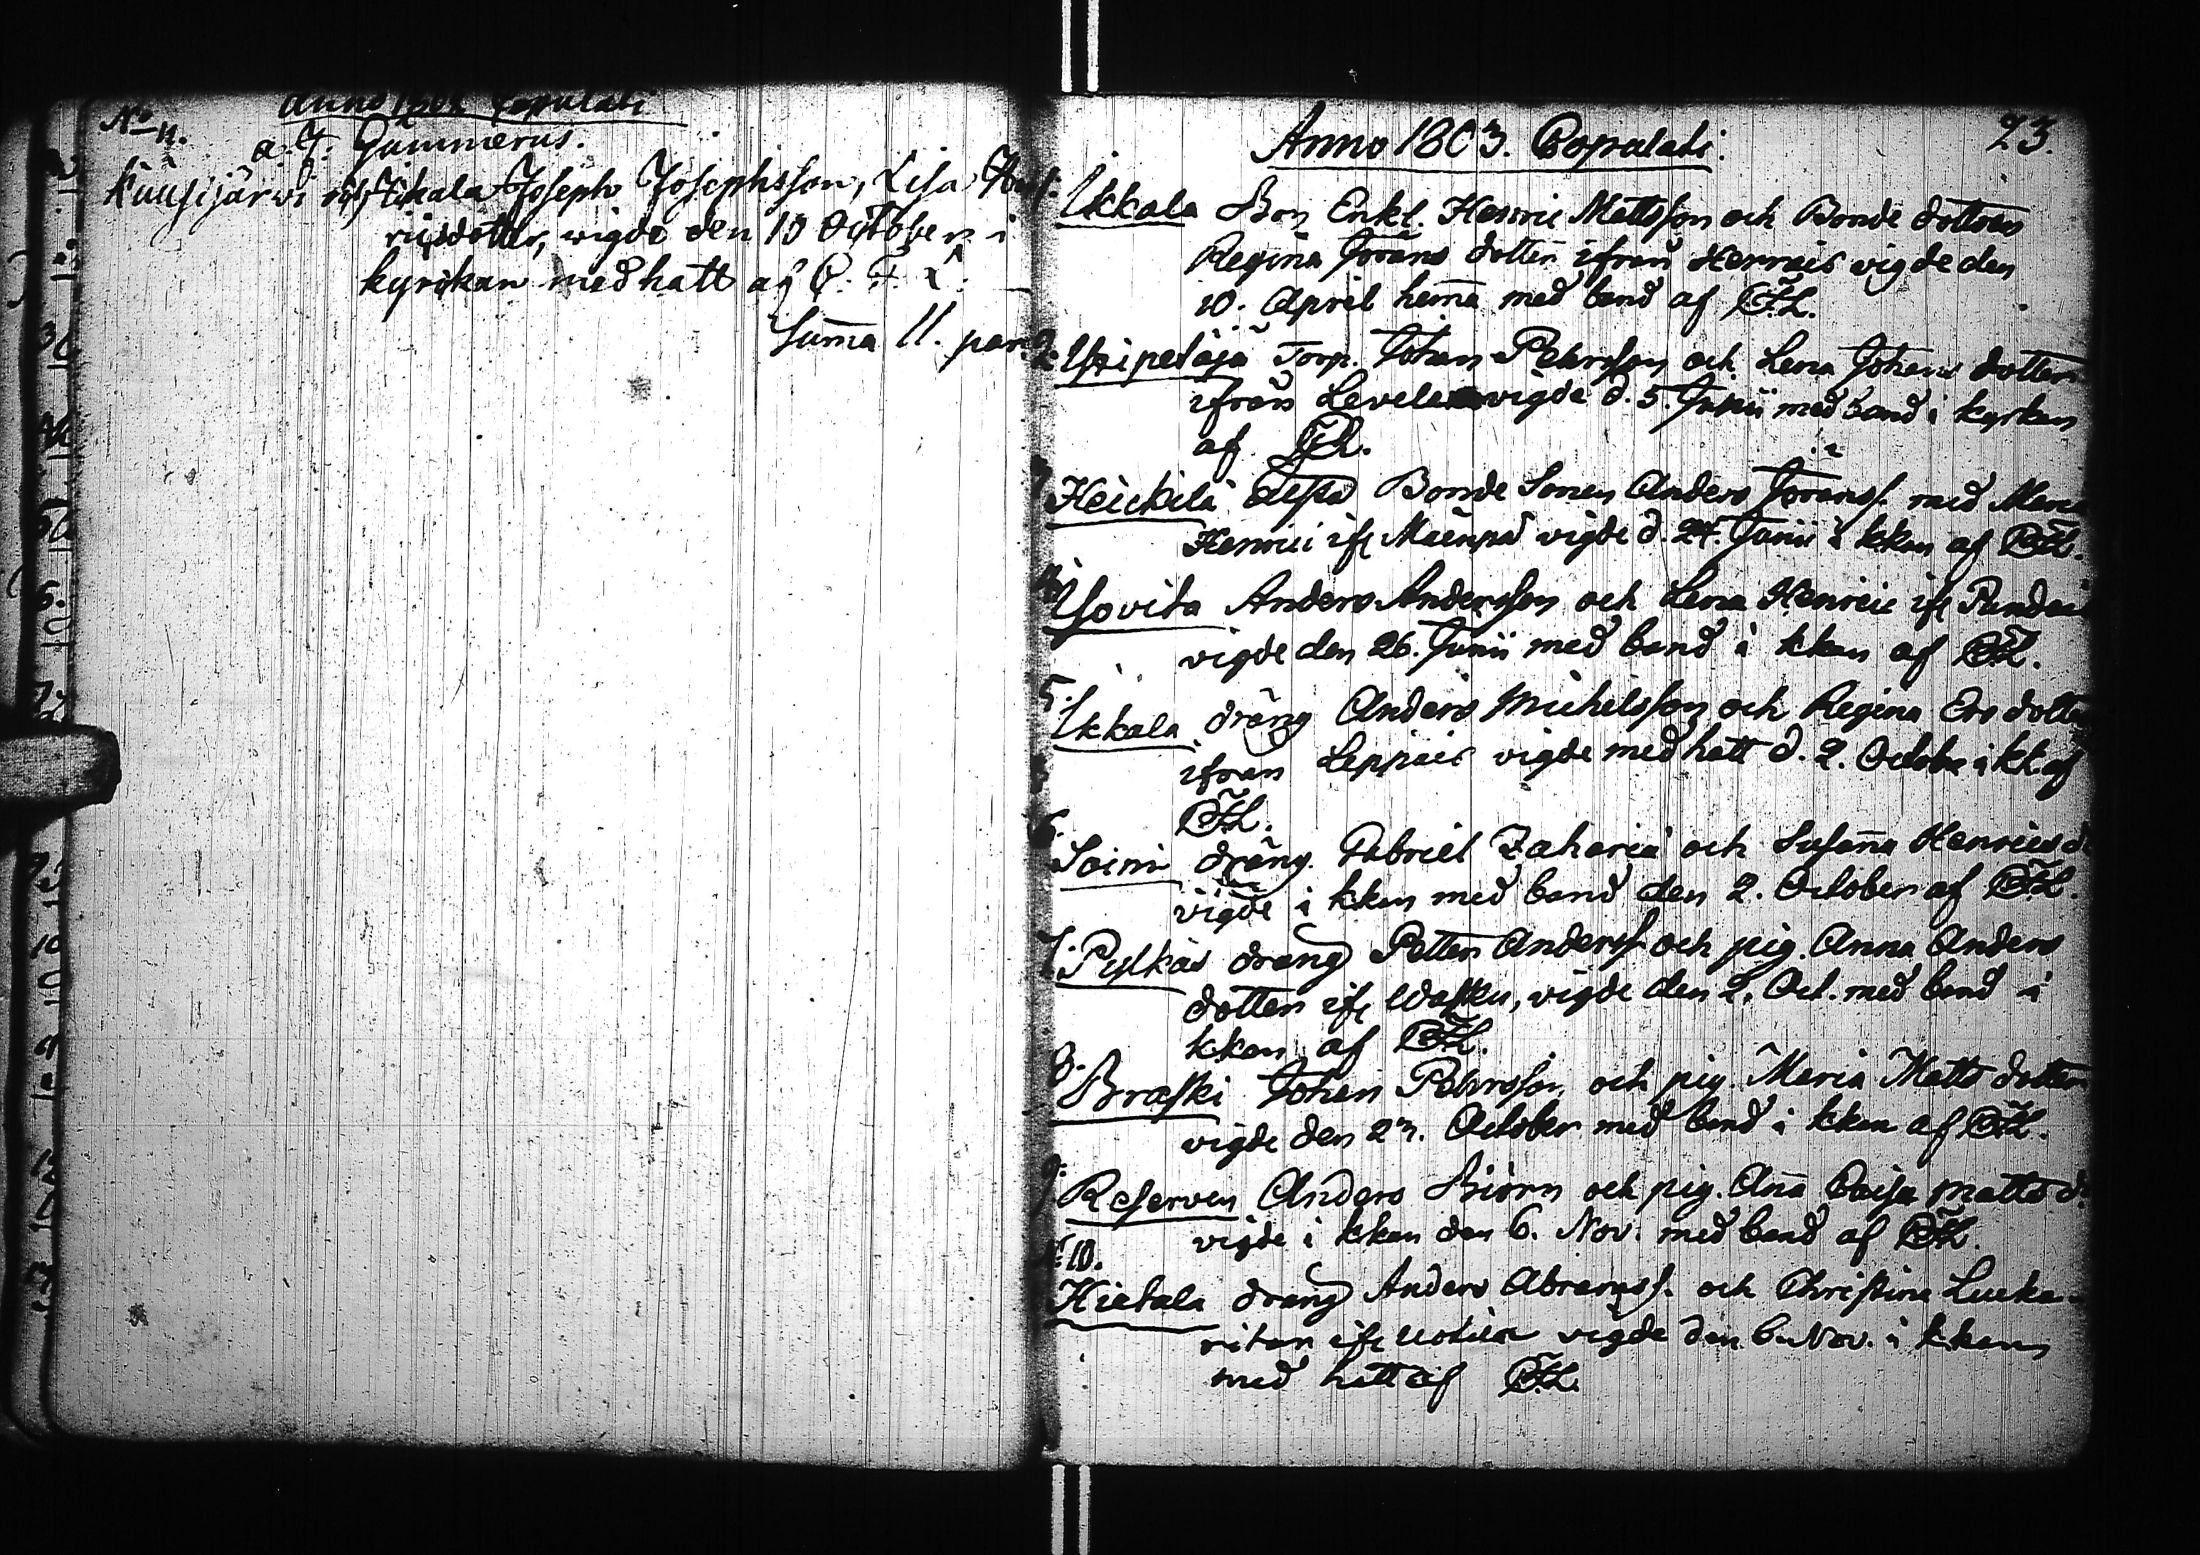 Anno 1802 Copulati
No 11.
a. J. Gummerus.
Kuusijärwi Joseph Josephsson, Lisa Hen-
ricsdotter, wigde den 10 October i
kyrckan med hatt af C. F. L.
Suma 11. par.
23.
Anno 1803. Copulati.
Ikkala Bon. Enkl. Henric Mattsson och Bonde dottren
Regina Jörans dotter ifrån Herrais vigde den
10. April hema med band af CFL.
2. Torp. Johan Pehrsson och Lena Johans dotter
ifrån vigde d. 5. Junii med band i kyrkan
af CFL.
Heickilä Bonde Sonen Anders Jöranss. med
Henrici ifr Mäenpä vigde d. 24. Junii i kkan af CFL.
4. Isovita Anders Andersson och Lena Henrici ifr
vigde den 26. Junii med band i kkan af CFL.
5. Ikkala dräng Anders Michelsson och Regina Ers dotter
ifrån Leppais vigde med hatt d. 2. October i kk. af
CFL.
6. Soini dräng. Gabriel Zacharia och Susana Henrics d.
vigde i kkan med band den 2. October af CFL.
7. Pylkäs dräng Petter Anderss. och pig. Anna Anders
dotter ifr Wasku, vigde den 2. Oct. med band i
kkan af CFL.
8. Braski Johan Pehrsson och pig. Maria Matts dotter
vigde den 23. October med band i kkan af CFL.
9. Reserven Anders Biörn och pig. Ana Caisa Matts d.
vigde i kkan den 6. Nov. med band af CFL.
N: 10.
Hietala dräng Anders Abramss. och Christina Lucka-
ritar ifr vigde den 6. Nov. i kkan
med hatt af CFL.